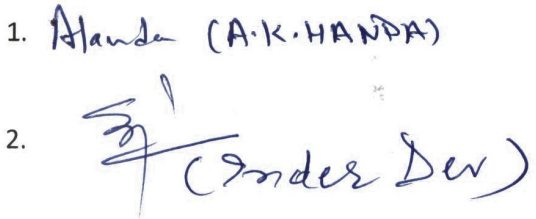 1. AHanda (A.K.HANDA)
2. (Inder Dev)